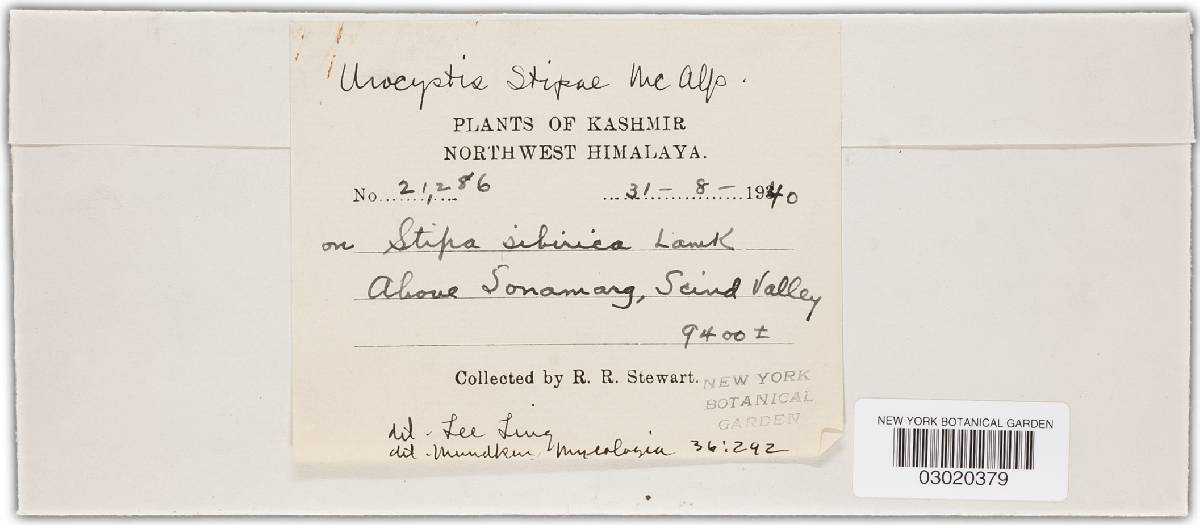 Urocystis Stipae McAlp.
PLANTS OF KASHMIR
NORTHWEST HIMALAYA.
No. 21,286 31 - 8 - 1940
on Stipa sibirica Lamk
Above Sonamarg, Scind Valley
9400 ±
Collected by R. R. Stewart.
NEW YORK
BOTANICAL
GARDEN
det. Lee Ling
det. Mundkur, Mycologia 36:292
NEW YORK BOTANICAL GARDEN
03020379